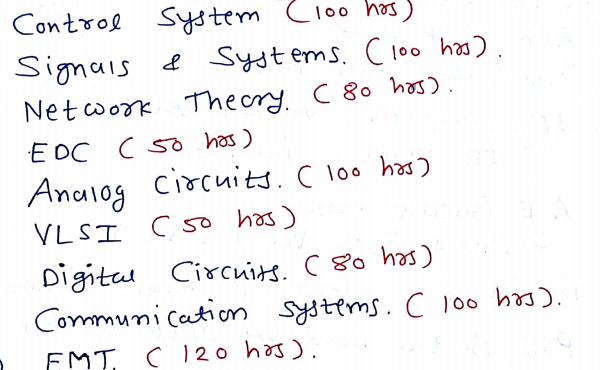 Control System (100 hrs)
Signals & Systems. (100 hrs).
Network Theory. (80 hrs).
EDC (50 hrs)
Analog Circuits. (100 hrs)
VLSI (50 hrs)
Digital Circuits. (80 hrs)
Communication Systems. (100 hrs).
EMT. (120 hrs).